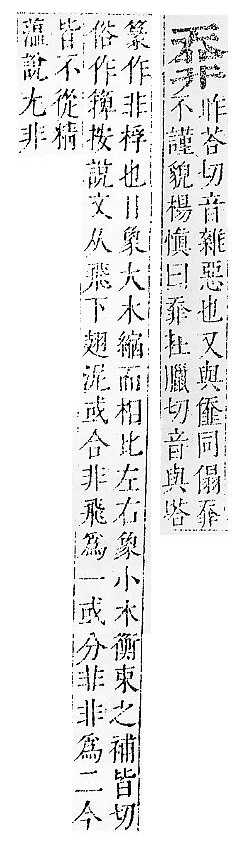 昨荅切音雜惡也又與同傝
不謹貌楊慎曰杜臘切音與塔
篆作非桴也象大木縮而相比左右象小木衡束之補皆切
俗作簰按說文从飛下翅泥或合非飛爲一或分非非爲二今
皆不從精
薀說尤非